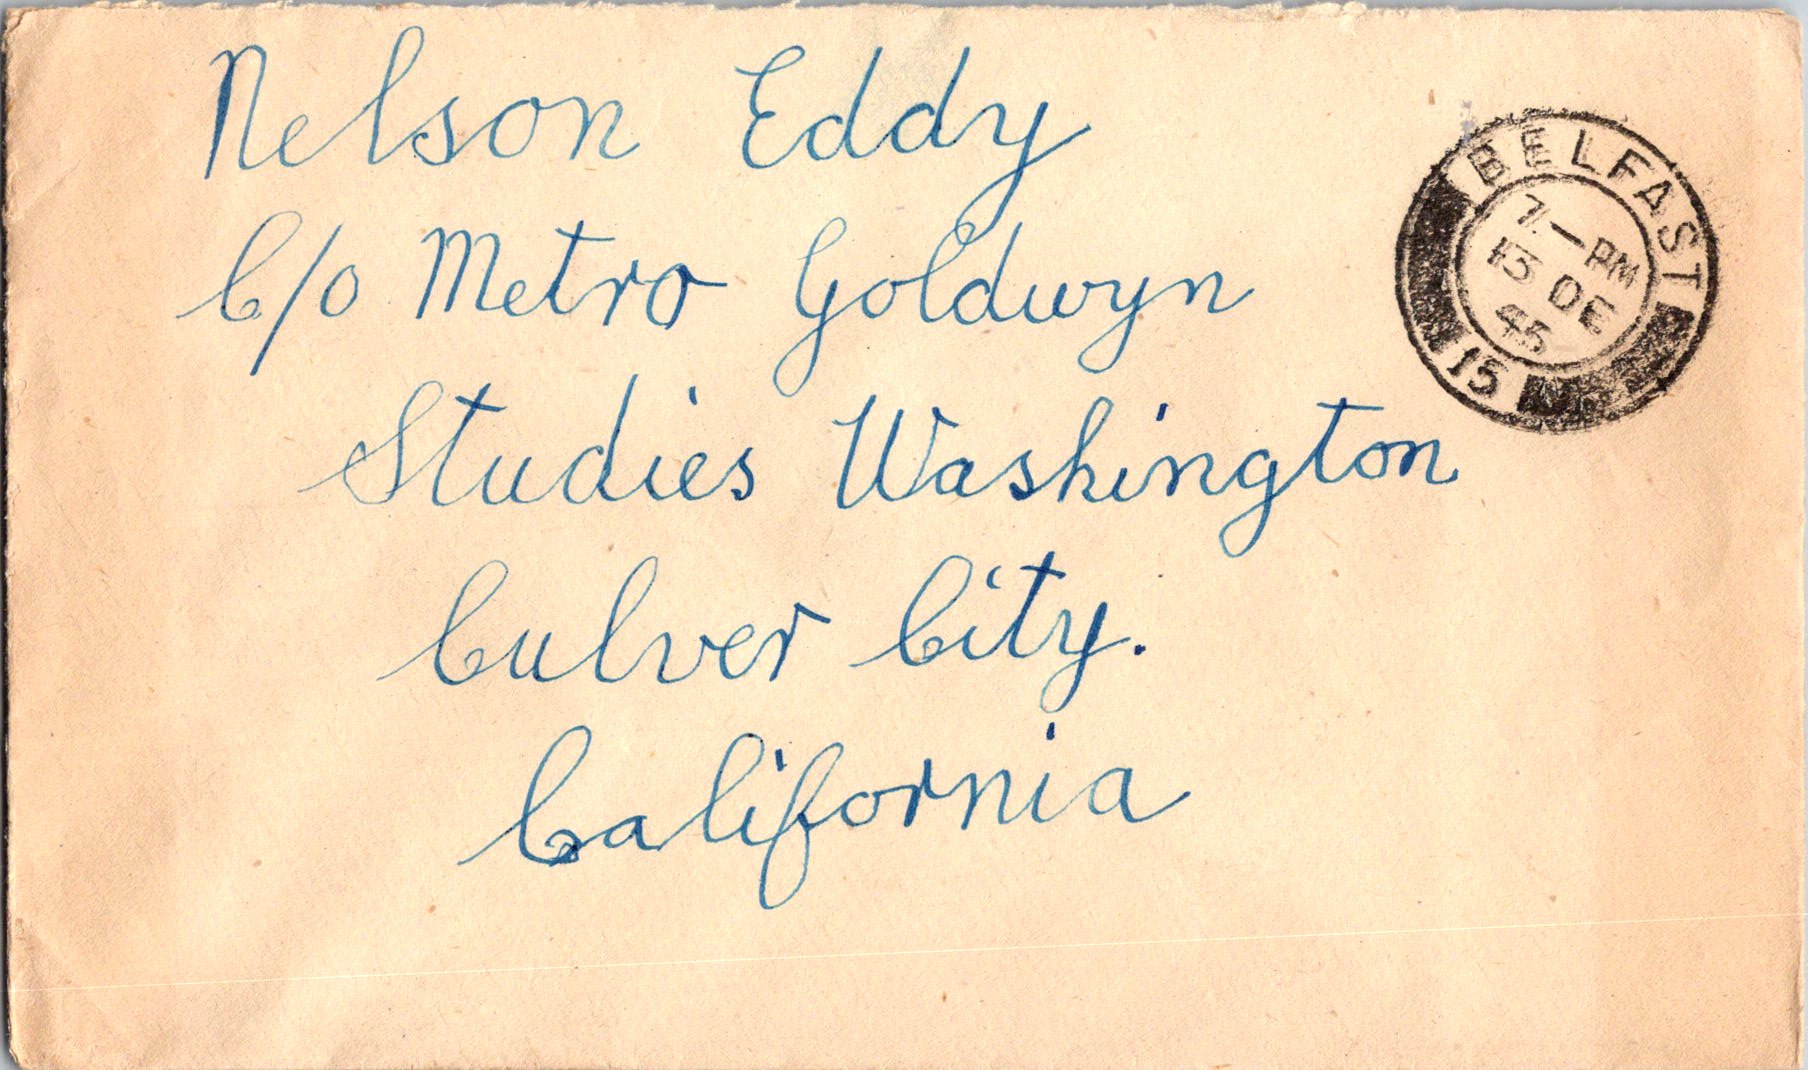 Nelson Eddy
C/o Metro Goldwyn
Studies Washington
Culver City.
California
BELFAST
7 — PM
13 DE
45
15